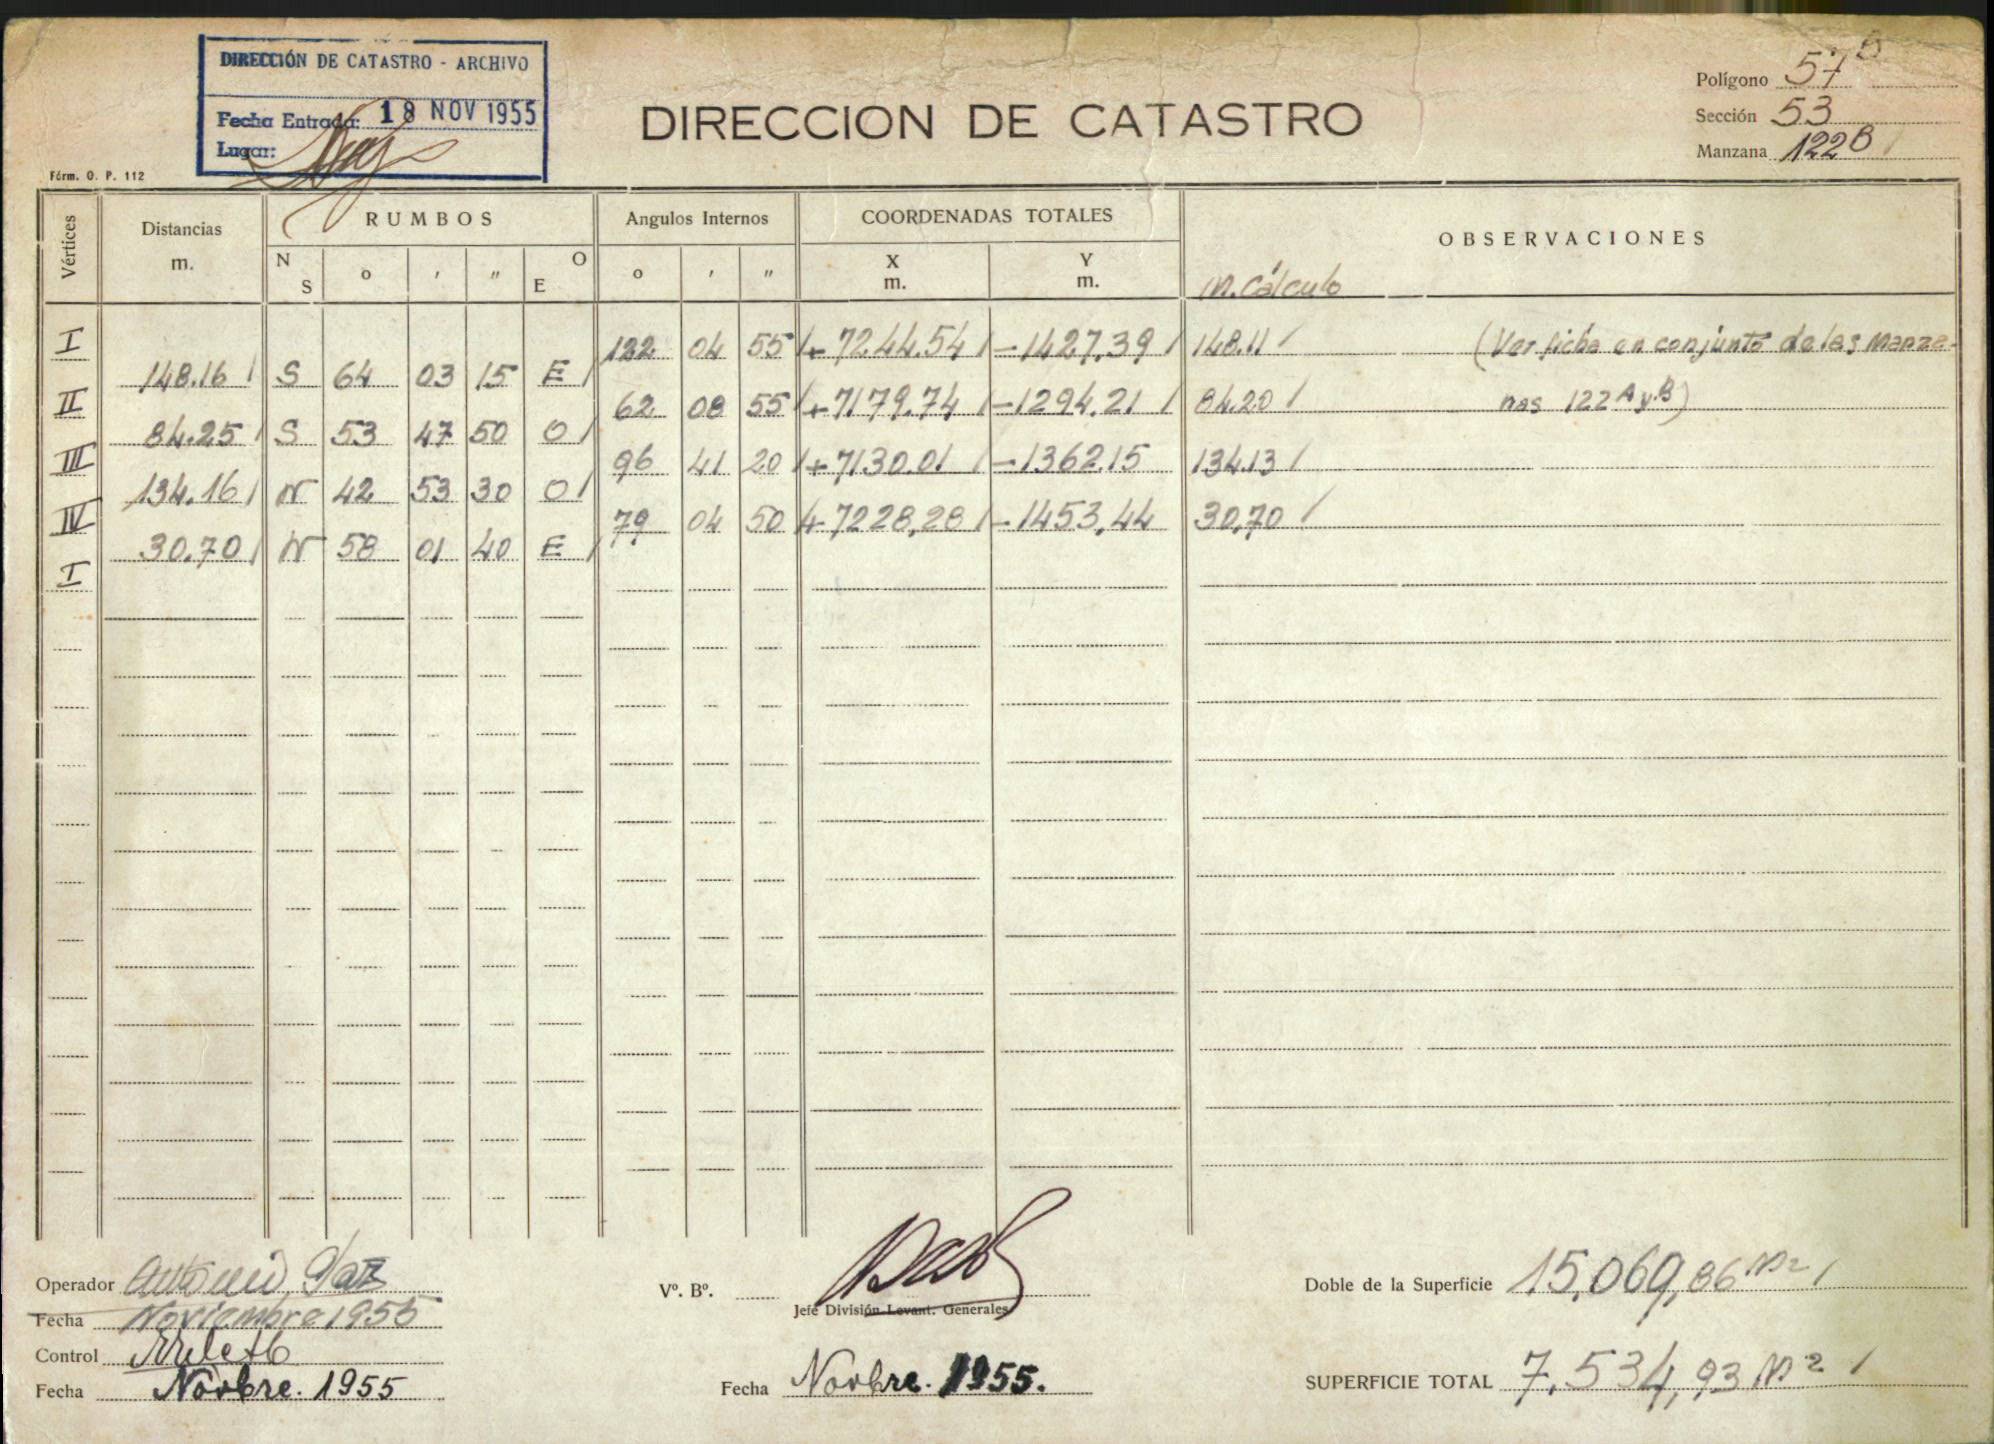 DIRECCIÓN DE CATASTRO - ARCHIVO
Fecha Entrada: 18 NOV 1955
Lugar:
DIRECCION DE CATASTRO
Polígono 57 B
Sección 53
Manzana 122B
Fórm. O. P. 112
Vértices Distancias m. RUMBOS Angulos Internos COORDENADAS TOTALES OBSERVACIONES
N S o ' " O E o ' " X m. Y m. m. Cálculo
I 122 04 55 +7244.54 -1427.39 148.11 (Ver ficha en conjunto de las Manza-
148.16 S 64 03 15 E
II 62 08 55 +7179.74 -1294.21 84.20 nas 122 A y B)
84.25 S 53 47 50 O
III 96 41 20 +7130.01 -1362.15 134.13
134.16 N 42 53 30 O
IV 79 04 50 +7228,28 -1453,44 30,70
30.70 N 58 01 40 E
I
Operador Antonio
Fecha Noviembre 1955
Control
Fecha Novbre. 1955
Vº. Bº.
Jefe División Levant. Generales
Fecha Novbre. 1955.
Doble de la Superficie 15.069,86 m2
SUPERFICIE TOTAL 7.534,93 m2